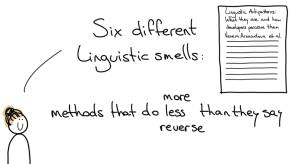 Six different
Linguistic smells:
Linguistic Antipatterns:
What they are and how
developers perceive them
Venera Arnaoudova et al.
more
methods that do less than they say
reverse